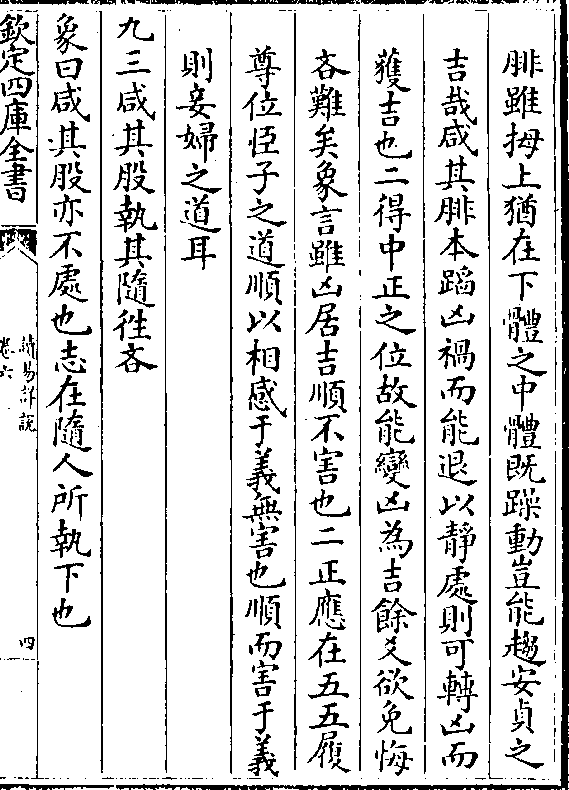 腓雖拇上猶在下體之中體既躁動豈能趨安貞之
吉哉咸其腓本蹈凶禍而能退以靜處則可轉凶而
獲吉也二得中正之位故能變凶為吉餘爻欲免悔
吝難矣象言雖凶居吉順不害也二正應在五五履
尊位臣子之道順以相感于義無害也順而害于義
則妾婦之道耳
九三咸其股執其隨徃吝
象曰咸其股亦不處也志在隨人所執下也
欽定四庫全書
讀易詳說
卷六
四